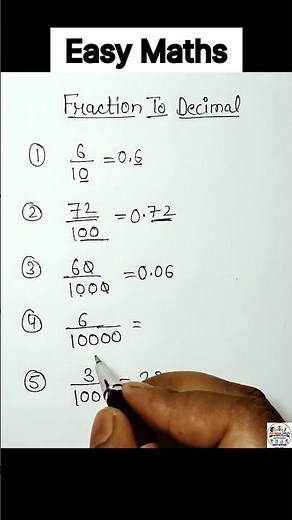 Easy Maths
Fraction To Decimal
① 6/10 = 0.6
② 72/100 = 0.72
③ 60/1000 = 0.06
④ 6/10000 =
⑤ 3/100